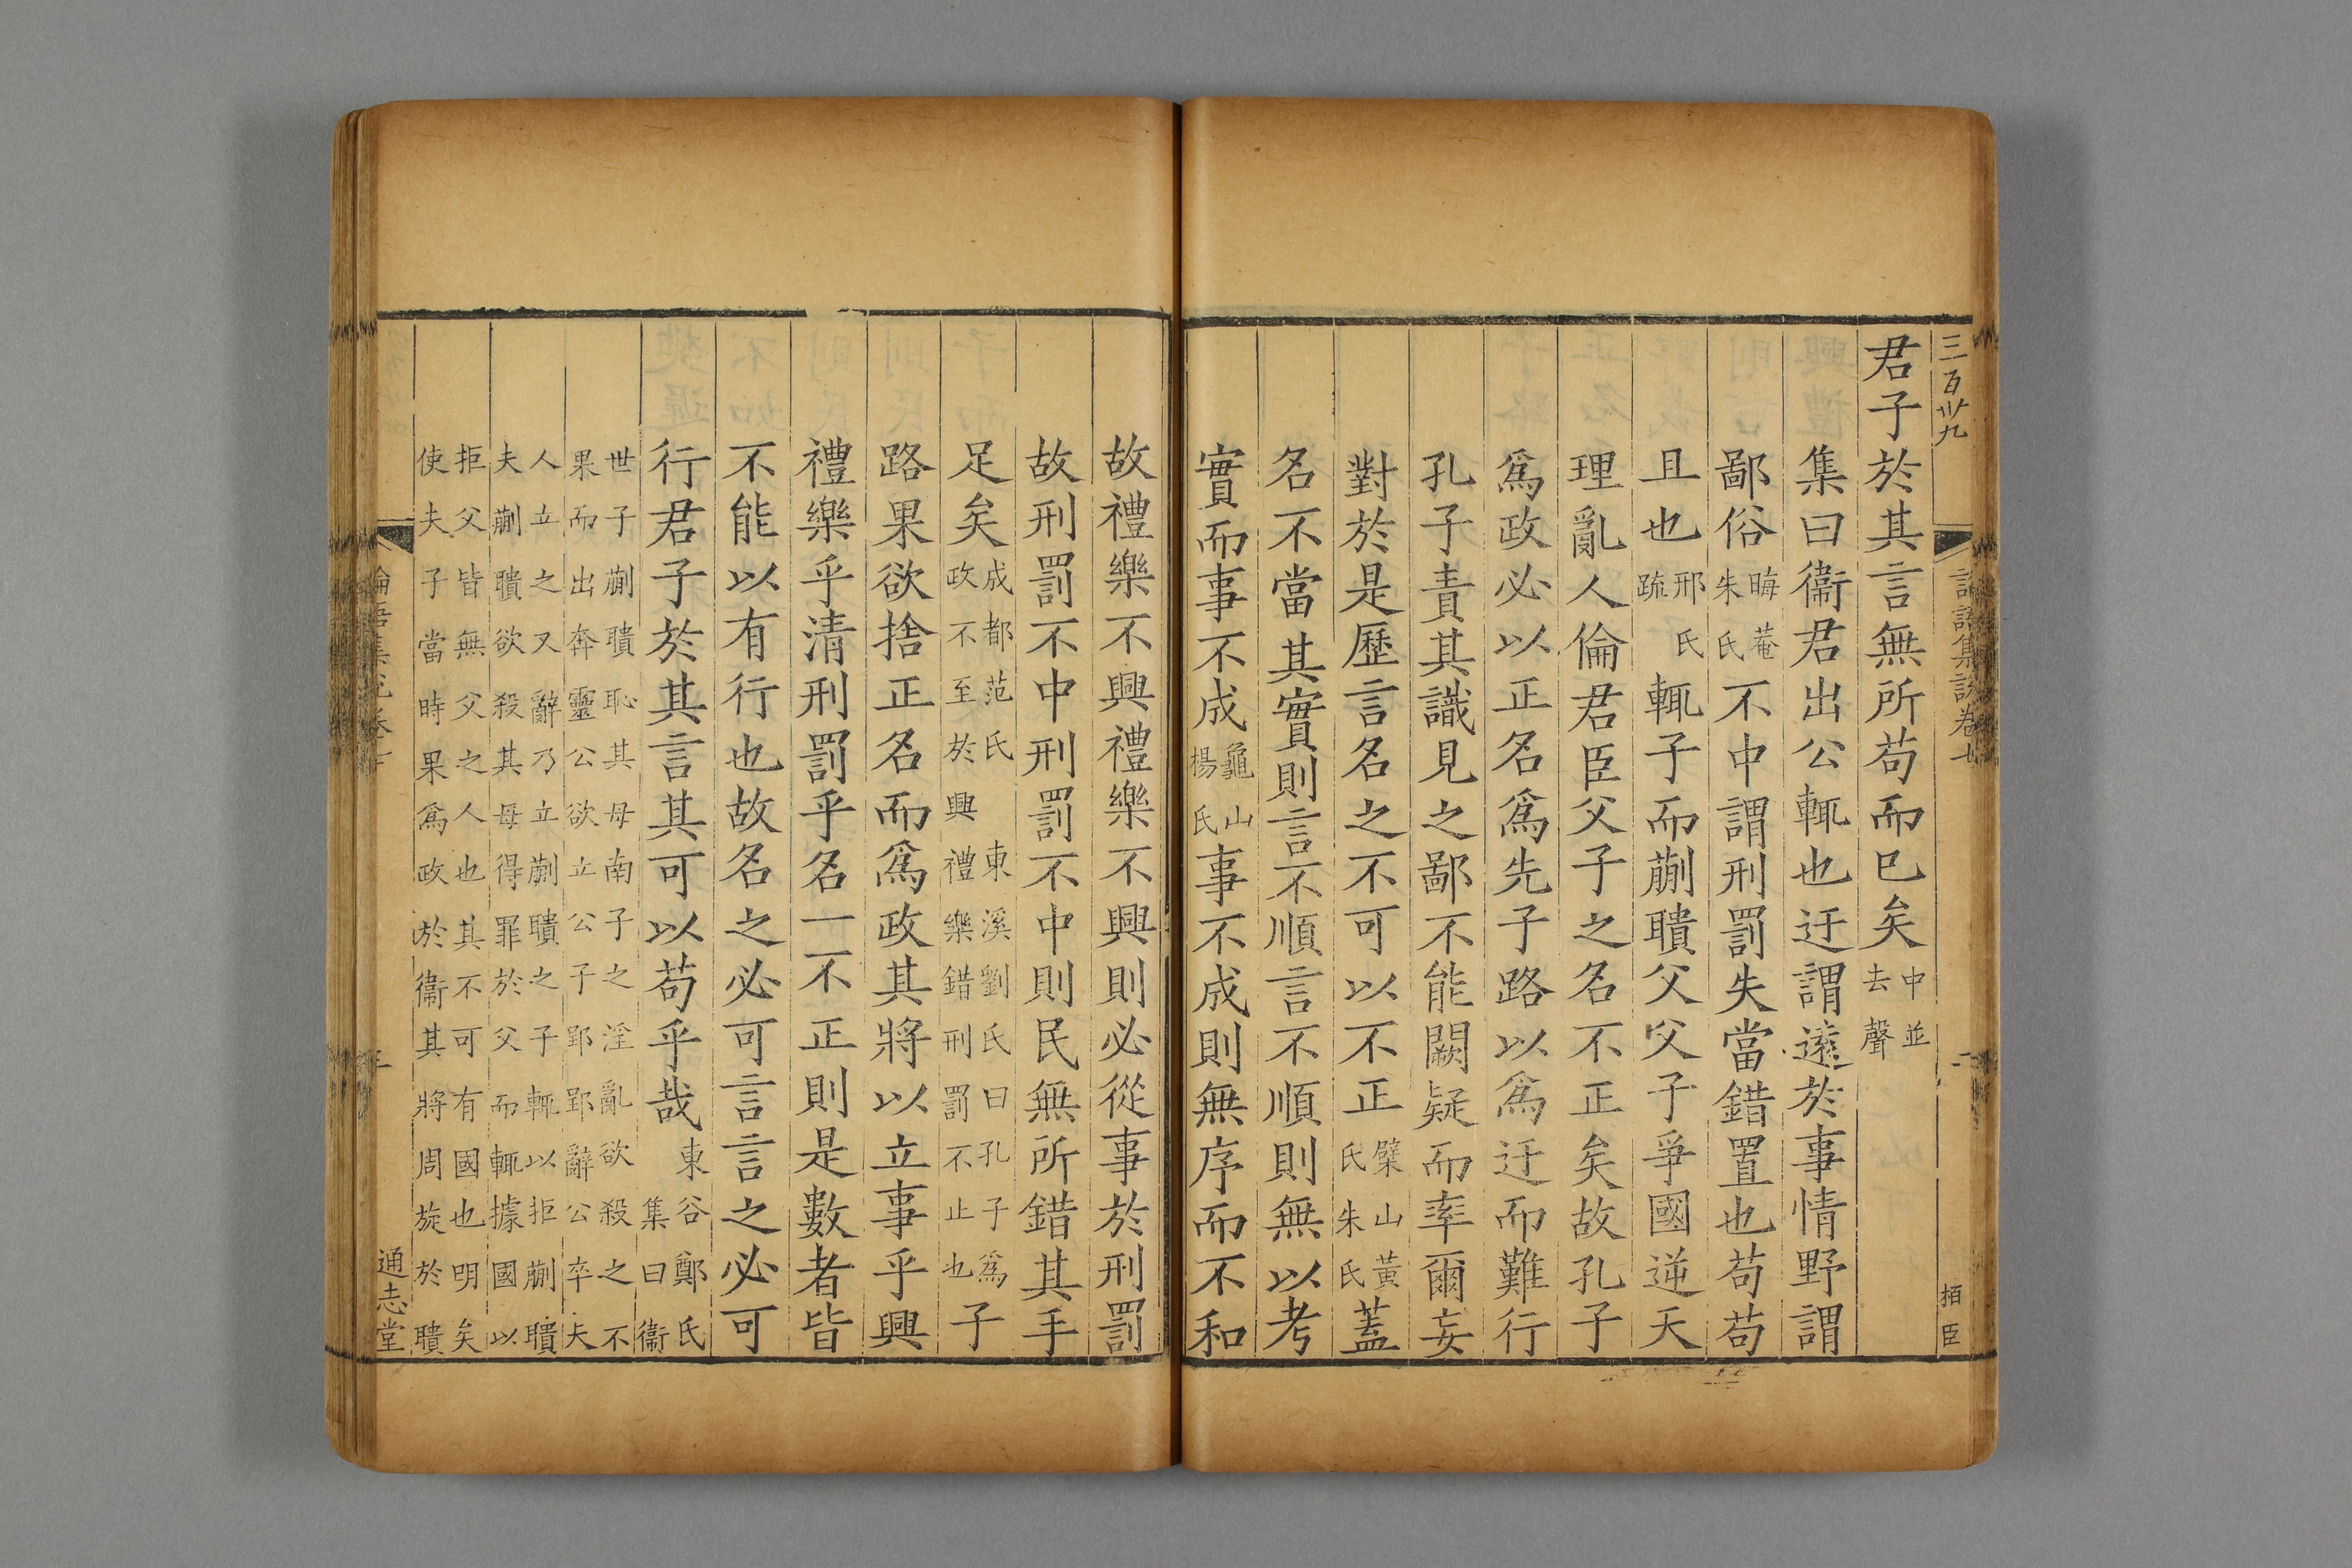 三百卅九
論語集說卷七
二
栢臣
君子於其言無所苟而已矣中並去聲
集曰衞君出公輒也迂謂遠於事情野謂
鄙俗晦菴朱氏不中謂刑罰失當錯置也苟苟
且也邢氏疏輒子而蒯聵父父子爭國逆天
理亂人倫君臣父子之名不正矣故孔子
爲政必以正名爲先子路以爲迂而難行
孔子責其識見之鄙不能闕疑而率爾妄
對於是歷言名之不可以不正檗山黃氏朱氏蓋
名不當其實則言不順言不順則無以考
實而事不成龜山楊氏事不成則無序而不和
故禮樂不興禮樂不興則必從事於刑罰
故刑罰不中刑罰不中則民無所錯其手
足矣成都范氏東溪劉氏曰孔子爲政不至於興禮樂錯刑罰不止也子
路果欲捨正名而爲政其將以立事乎興
禮樂乎清刑罰乎名一不正則是數者皆
不能以有行也故名之必可言言之必可
行君子於其言其可以苟乎哉東谷鄭氏集曰衞
世子蒯聵恥其母南子之淫亂欲殺之不
果而出奔靈公欲立公子郢郢辭公卒夫
人立之又辭乃立蒯聵之子輒以拒蒯聵
夫蒯聵欲殺其母得罪於父而輒據國以
拒父皆無父之人也其不可有國也明矣
使夫子當時果爲政於衞其將周旋於聵
論語集說卷七
通志堂